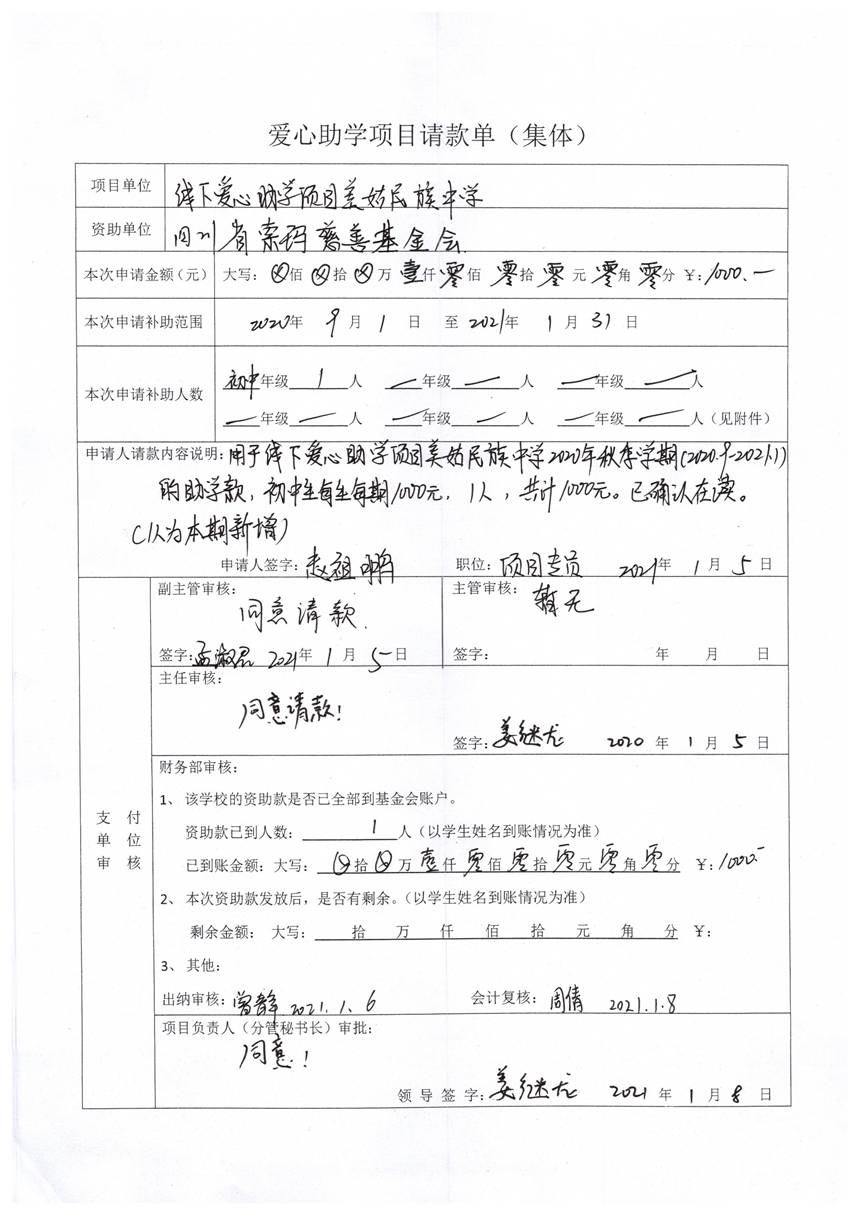 爱心助学项目请款单（集体）
项目单位 线下爱心助学项目美姑民族中学
资助单位 四川省索玛慈善基金会
本次申请金额（元） 大写：⊗佰⊗拾⊗万壹仟零佰零拾零元零角零分 ￥：1000.—
本次申请补助范围 2020年9月1日 至2021年1月31日
本次申请补助人数 初中年级1人 —年级—人 —年级—人
—年级—人 —年级—人 —年级—人（见附件）
申请人请款内容说明：用于线下爱心助学项目美姑民族中学2020年秋季学期（2020.9-2021.1）
的助学款，初中生每生每期1000元，1人，共计1000元。已确认在读。
（1人为本期新增）
申请人签字：赵祖鹏 职位：项目专员 2021年1月5日
支付单位审核
副主管审核： 主管审核：
同意请款 暂无
签字：孟淑君 2021年1月5日 签字： 年 月 日
主任审核：
同意请款！
签字：姜继龙 2020年1月5日
财务部审核：
1、 该学校的资助款是否已全部到基金会账户。
资助款已到人数：1人（以学生姓名到账情况为准）
已到账金额：大写：⊗拾⊗万壹仟零佰零拾零元零角零分 ￥：1000.-
2、 本次资助款发放后，是否有剩余。（以学生姓名到账情况为准）
剩余金额： 大写： 拾 万 仟 佰 拾 元 角 分 ￥：
3、 其他：
出纳审核：曾静 2021.1.6 会计复核：周倩 2021.1.8
项目负责人（分管秘书长）审批：
同意！
领导签字：姜继龙 2021年1月8日